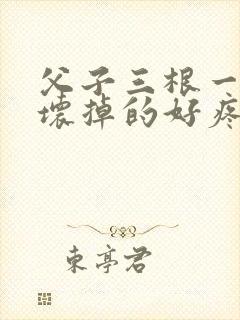 父子三根一
壞掉的好疼
東亭君